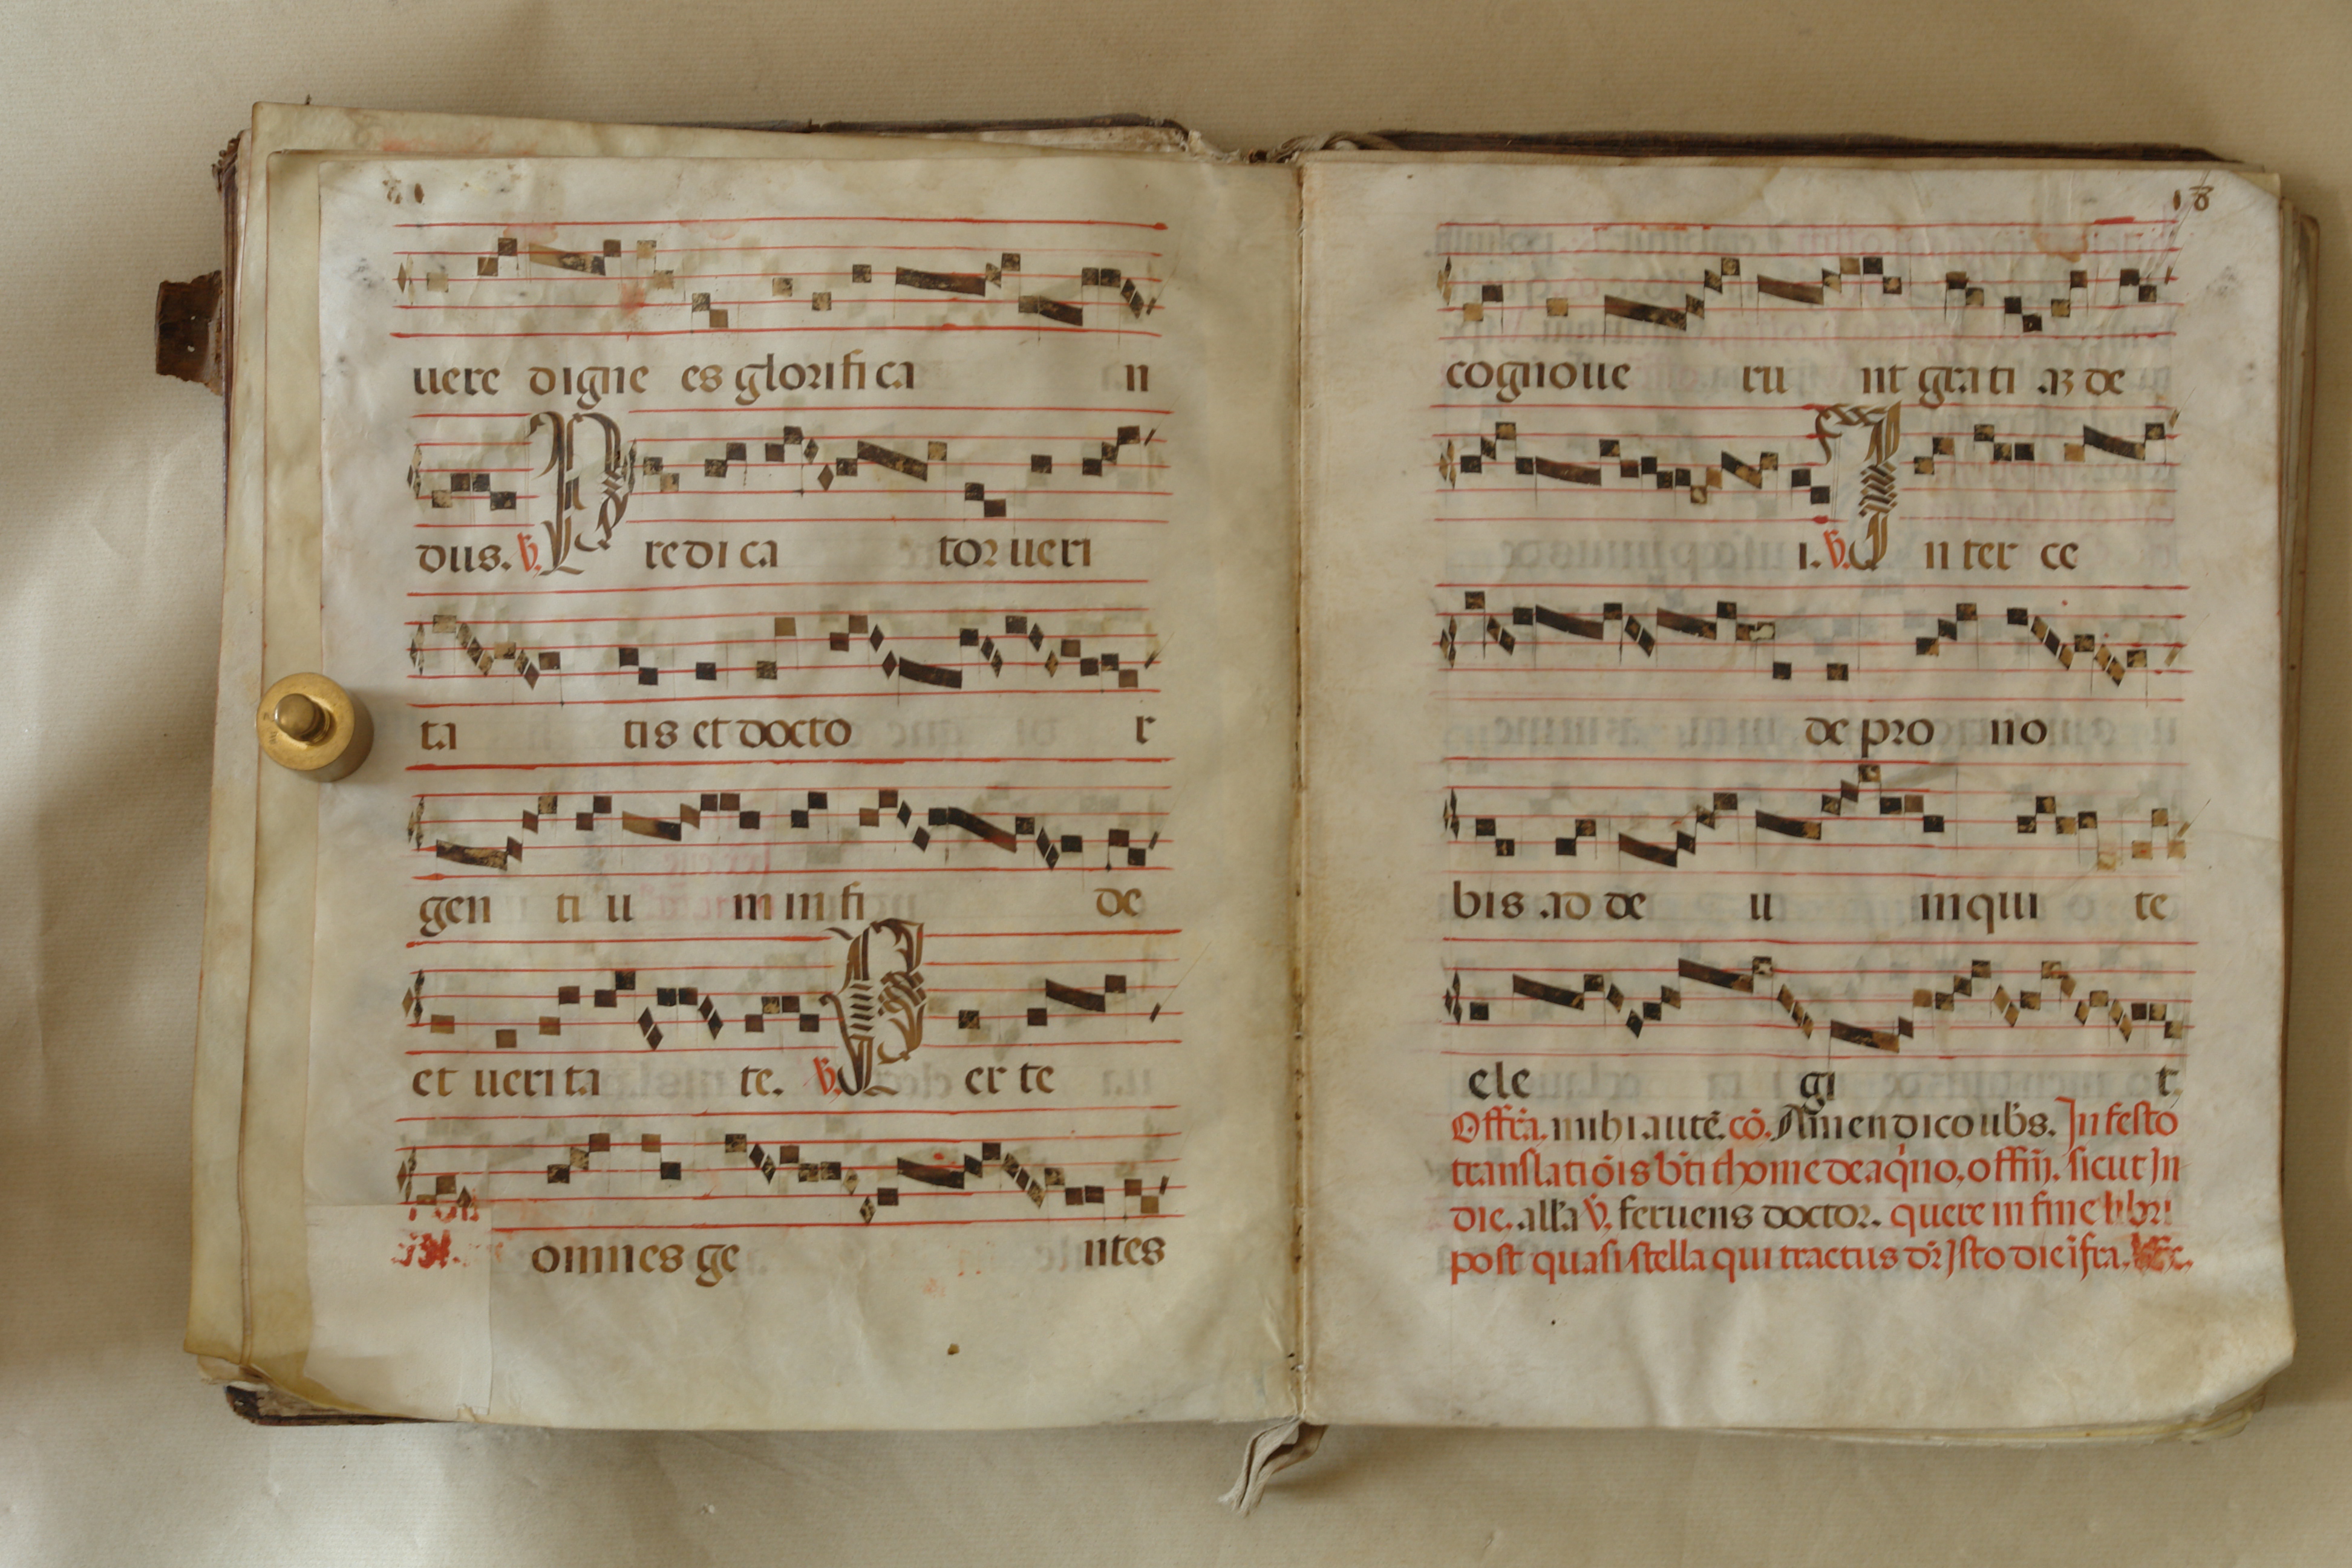 uere digne es glorifica n
dus. ℣. Predica tor ueri
ta tis et docto r
gen ti u m in fi de
et ueri ta te. ℣. Per te
omnes ge ntes
18
cognoue ru nt grati aʒ de
i. ℣. Inter ce
de pro no
bis ad de u m qui te
ele gi t
Offr̄a. mihi autē. cō. Amen dico ub̄s. In festo
translatiōis b̄ti thome de aq̇no, offm̄. sicut In
die. all̄a ℣. feruens doctor. quere in fine libri
post quasi stella qui tractus dr̄ Isto die īfra.